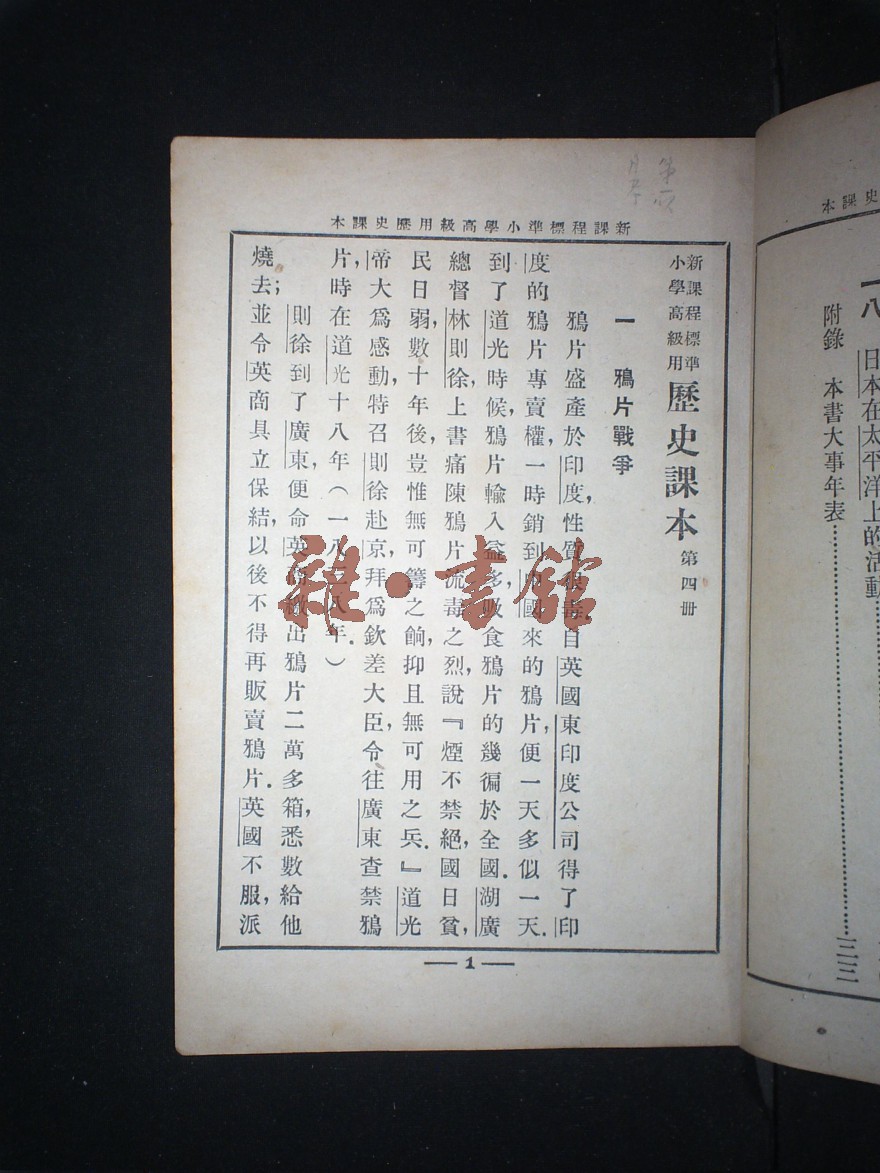 本課史歷用級高學小準標程課新
新課程標準
小學高級用
歷史課本 第四册
一 鴉片戰爭
鴉片盛產於印度，性質很毒，自英國東印度公司得了印
度的鴉片專賣權，一時銷到中國來的鴉片，便一天多似一天．
到了道光時候，鴉片輸入益多，吸食鴉片的幾徧於全國．湖廣
總督林則徐，上書痛陳鴉片流毒之烈，說『煙不禁絕，國日貧，
民日弱，數十年後，豈惟無可籌之餉，抑且無可用之兵．』道光
帝大爲感動，特召則徐赴京，拜爲欽差大臣，令往廣東查禁鴉
片，時在道光十八年（一八三八年．）
則徐到了廣東，便命英商繳出鴉片二萬多箱，悉數給他
燒去；並令英商具立保結，以後不得再販賣鴉片．英國不服，派
— 1 —
雜·書館
史課本
一八 日本在太平洋上的活動
附錄 本書大事年表